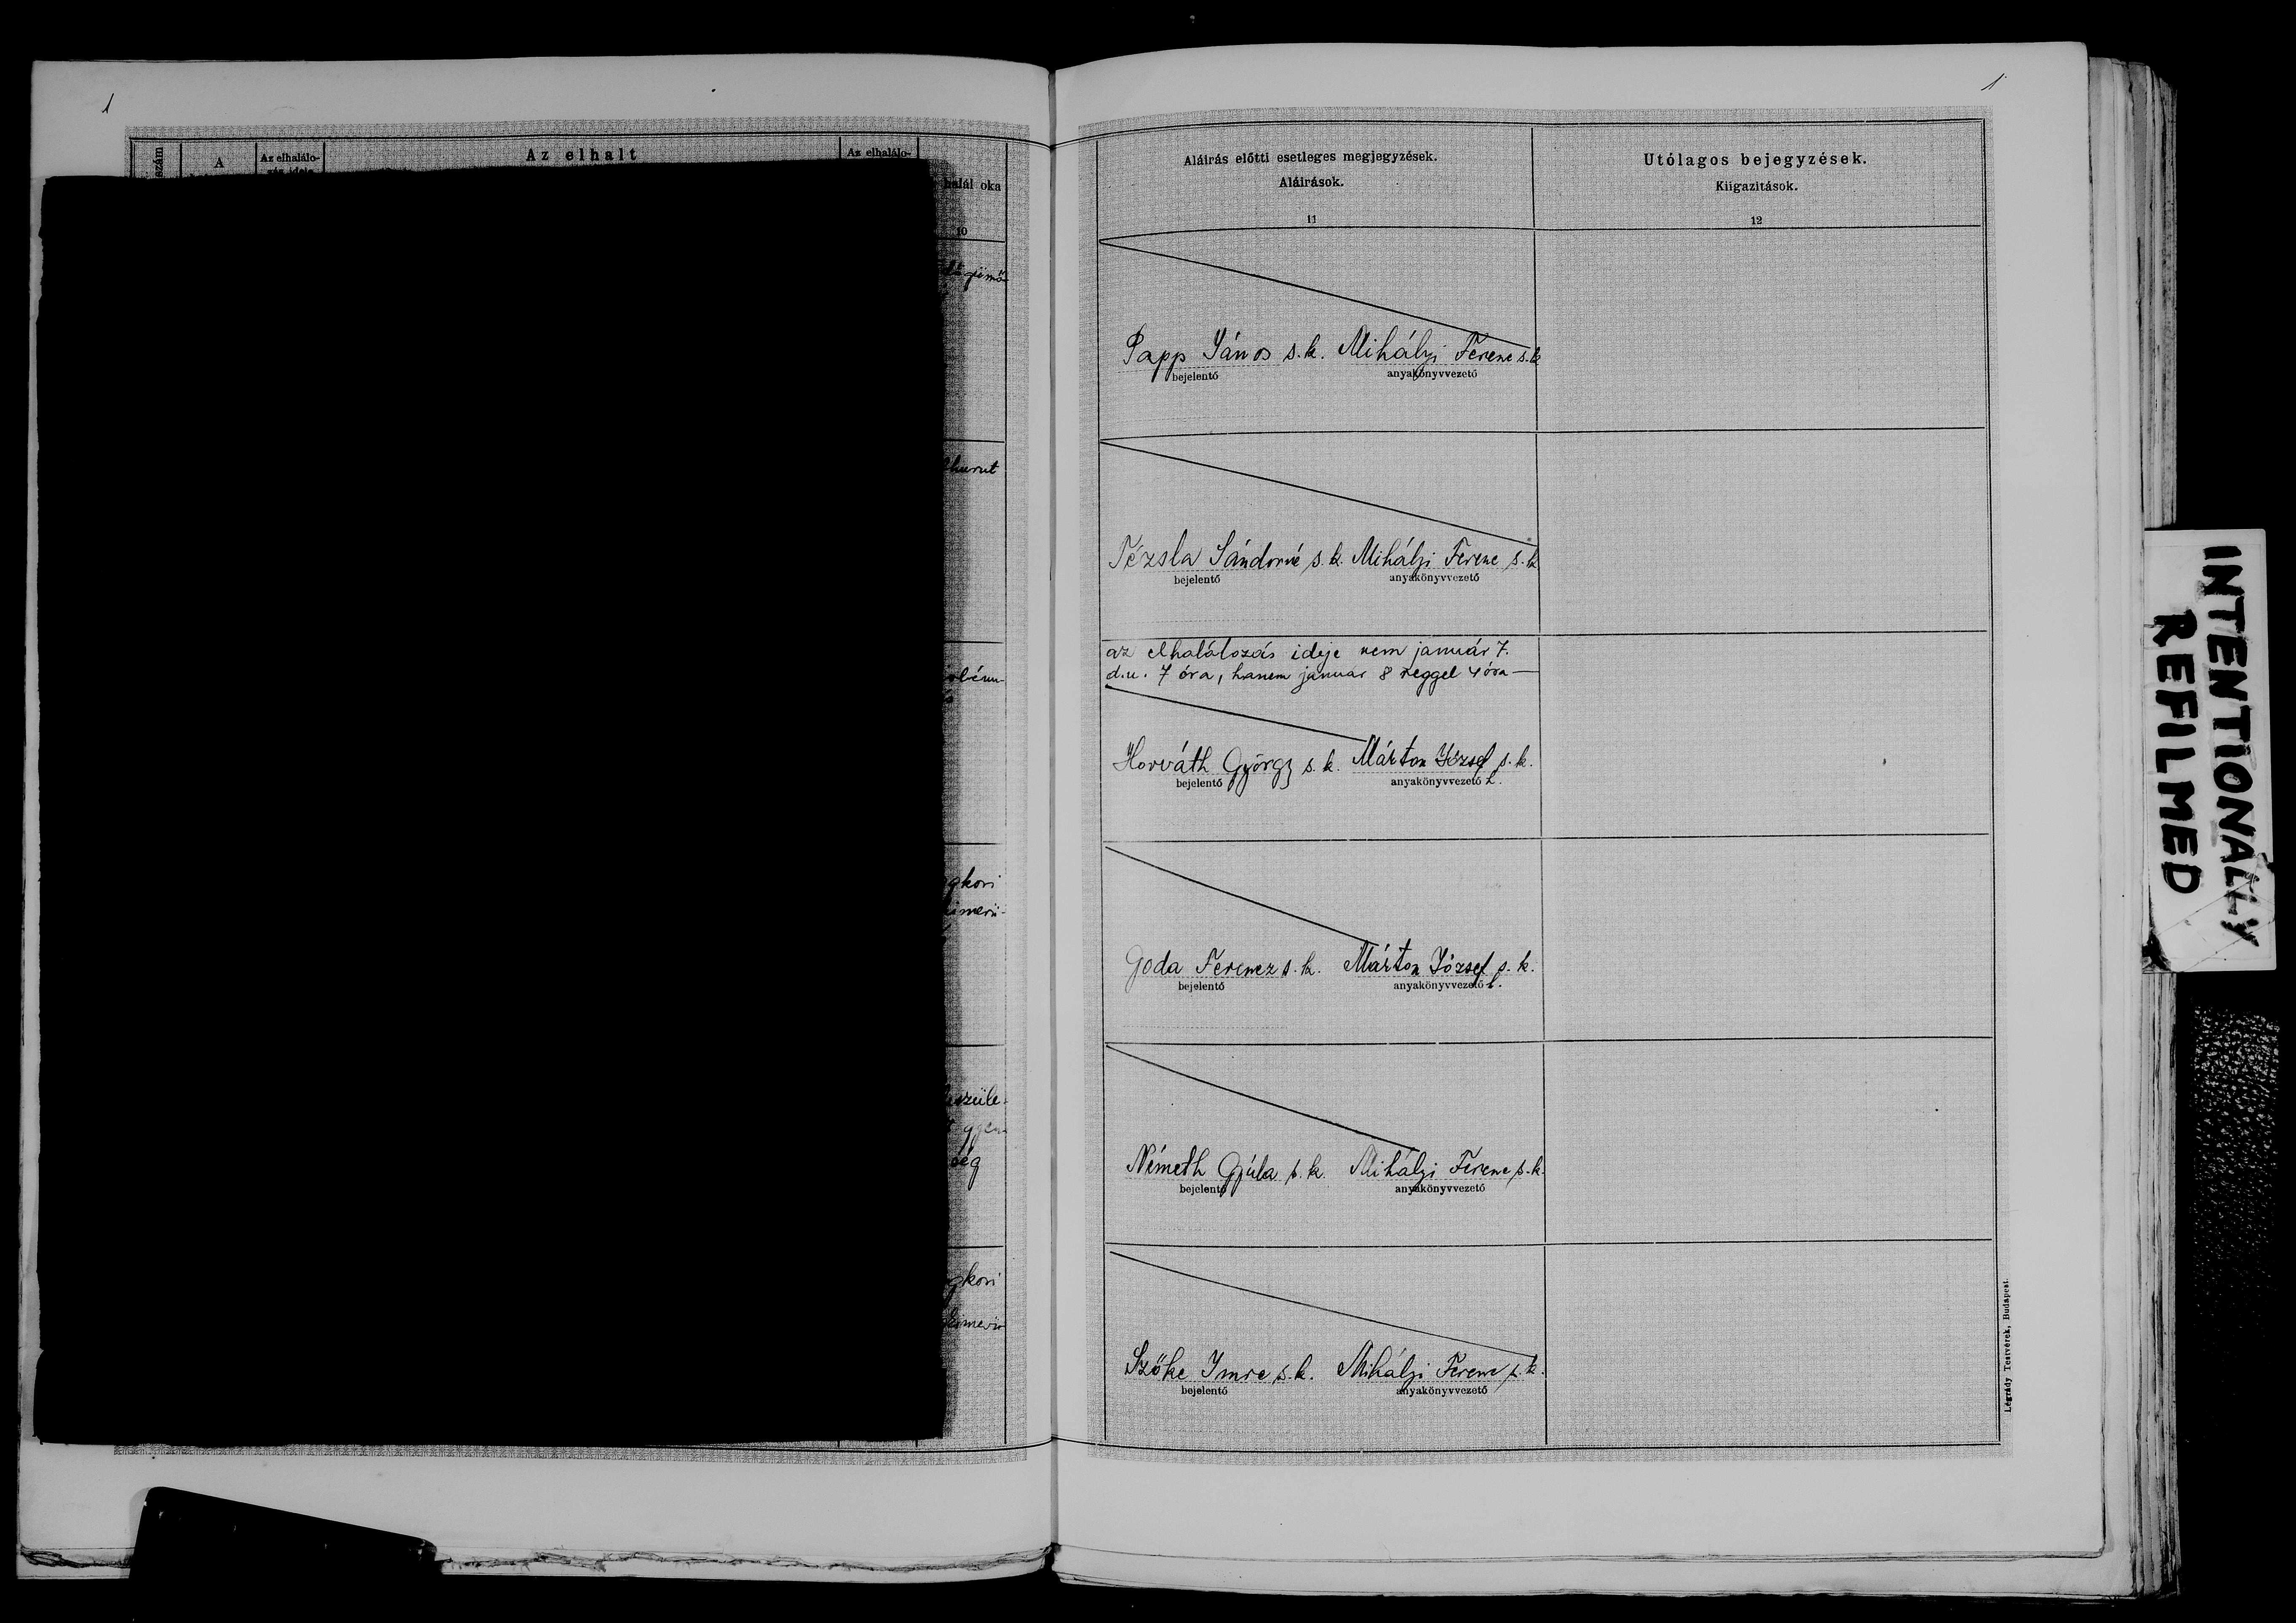 1
A
Az elhalálo-
Az elhalt
Az elhalálo-
halál oka
10
hurut
gkori
kimerü-
szüle-
gyen-
ség
gkori
kimerü-
1
Aláírás előtti esetleges megjegyzések.
Aláírások.
11
Utólagos bejegyzések.
Kiigazítások.
12
Papp János s.k. Mihályi Ferenc s.k
bejelentő anyakönyvvezető
Tézsla Sándorné s.k. Mihályi Ferenc s.k
bejelentő anyakönyvvezető
az elhalálozás ideje nem január 7.
d.u. 7 óra, hanem január 8 reggel 4 óra —
Horváth György s.k. Márton József s.k.
bejelentő anyakönyvvezető h.
Goda Ferencz s.k. Márton József s.k.
bejelentő anyakönyvvezető h.
Németh Gyula s.k. Mihályi Ferenc s.k.
bejelentő anyakönyvvezető
Szőke Imre s.k. Mihályi Ferenc s.k.
bejelentő anyakönyvvezető
Légrády Testvérek, Budapest.
INTENTIONALLY
REFILMED